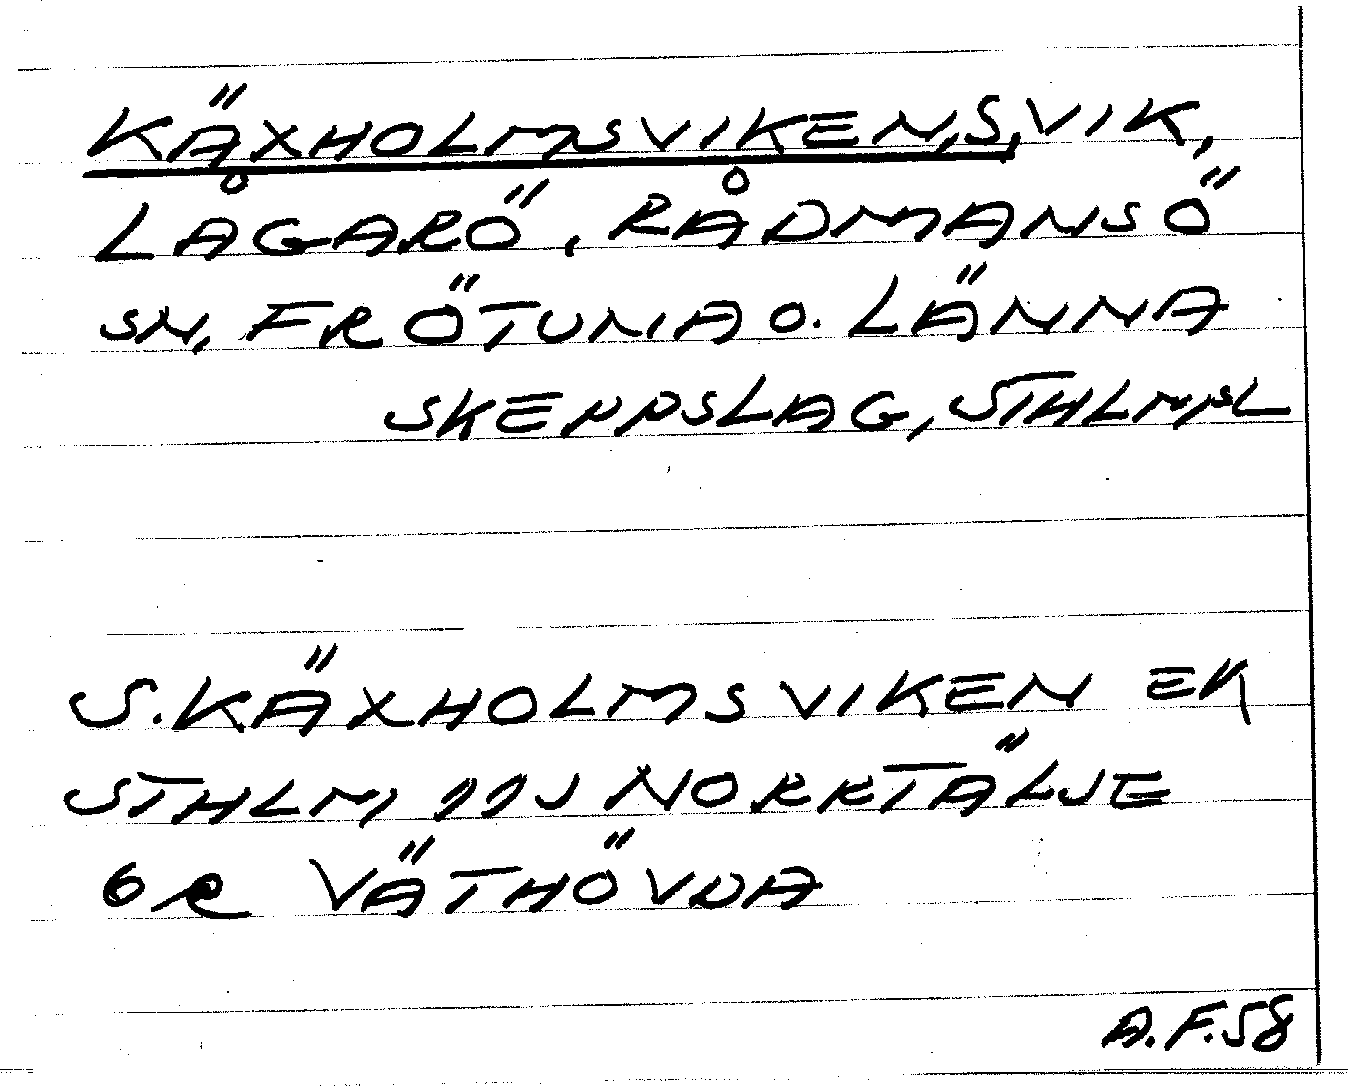 KÄXHOLMSVIKEN, S, VIK,
LÅGARÖ, RÅDMANSÖ
SN, FRÖTUNA O. LÄNNA
SKEPPSLAG, STHLMSL
S. KÄXHOLMSVIKEN EK
STHLM 11J NORRTÄLJE
6R VÄTHÖVDA
A.F.58